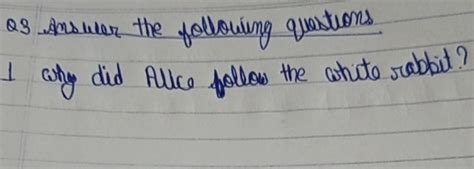 Q3 Answer the following questions
1 why did Alice follow the white rabbit?